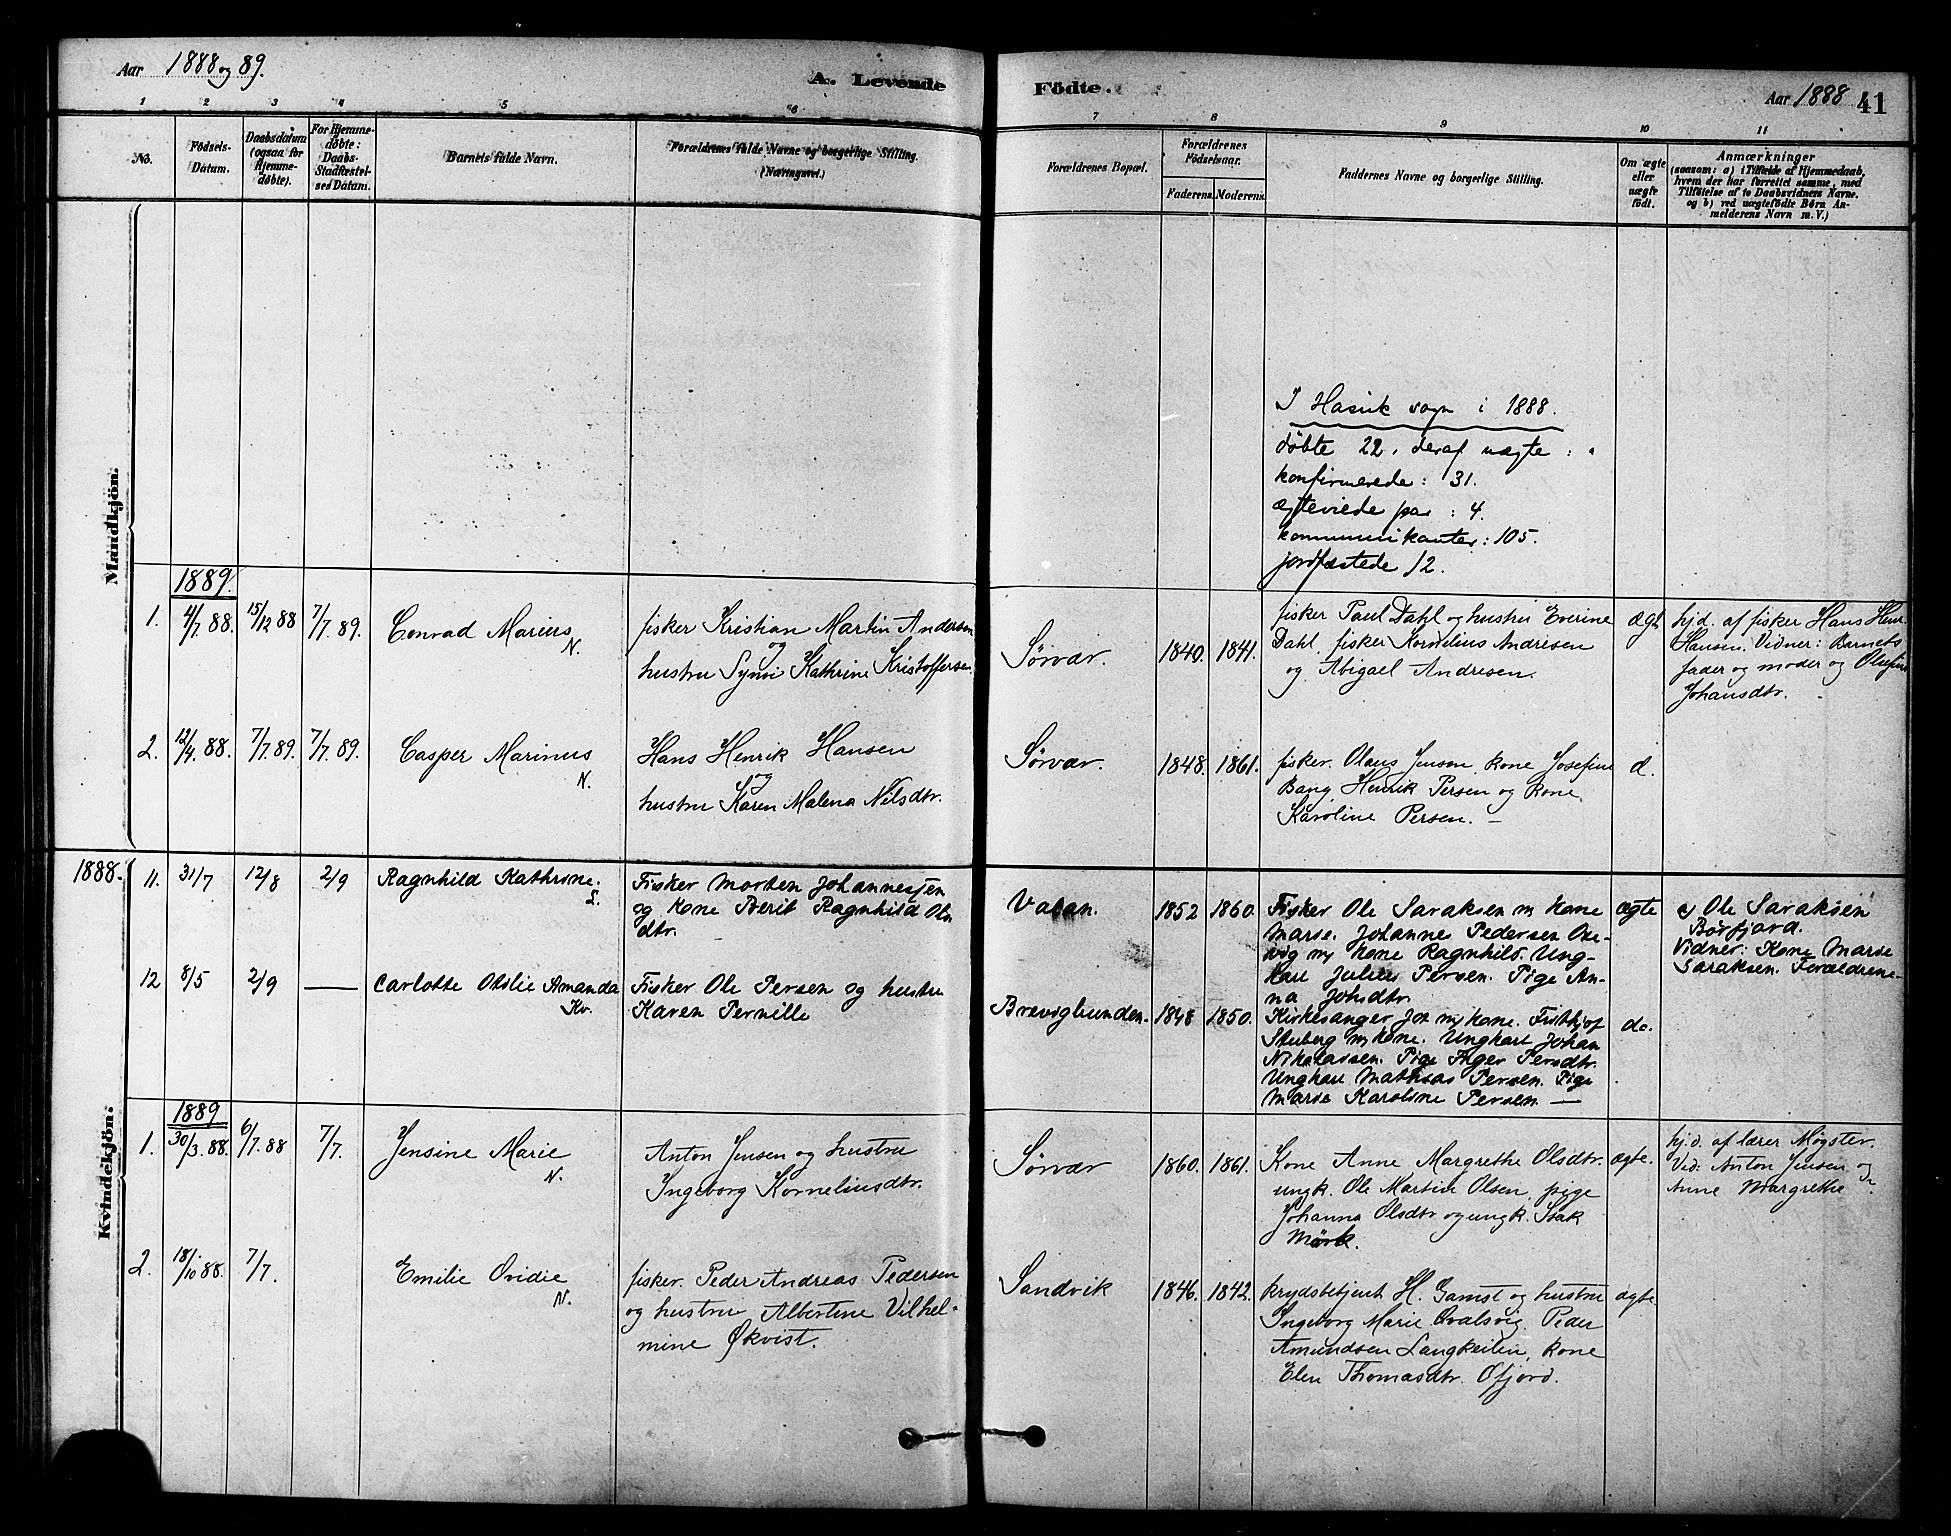 Aar 1888 og 89.
A. Levende Födte.
Aar 1888 41
1 2 3 4 5 6 7 8 9 10 11
No.
Födsels-
Datum.
Daabsdatum
(ogsaa for
Hjemme-
døbte).
For Hjemme-
døbte:
Daabs-
Stadfæstel-
ses Datum.
Barnets fulde Navn.
Forældrenes fulde Navne og borgerlige Stilling.
(Næringsvei.)
Forældrenes Bopæl.
Forældrenes
Födselsaar.
Faderens. Moderens.
Faddernes Navne og borgerlige Stilling.
Om ægte
eller
uægte
født.
Anmærkninger
(saasom: a) i Tilfælde af Hjemmedaab,
hvem der har forrettet samme, med
Tilföielse af to Daabsvidners Navne.
og b) ved uægtefödte Børn An-
melderens Navn m. V.)
Mandkjön.
I Hasvik sogn i 1888.
døbte 22, deraf uægte : "
konfirmerede : 31.
ægteviede par : 4.
kommunikanter : 105.
jordfæstede 12.
1889.
1. 4/7. 88. 15/12 88 7/7. 89. Conrad Marius N.
fisker Kristian Martin Andersen
og
hustru Synøi Kathrine Kristoffersen
Sørvær. 1840. 1841.
fisker Paul Dahl og hustru Everine
Dahl, fisker Kornelius Andresen
og Abigael Andresen.
ægte
hjd. af fisker Hans Henr.
Hansen. Vidner: Barnets
fader og moder og Olufine
Johansdtr.
2. 12/4. 88. 7/7. 89. 7/7. 89. Casper Marinus N.
Hans Henrik Hansen
og
hustru Karen Malena Nilsdtr.
Sørvær. 1848. 1861.
fisker Olaus Jensen, kone Josefine
Bang Henrik Persen og kone
Karoline Persen. —
d.
Kvindekjön.
1888.
11. 31/7 12/8 2/9 Ragnhild Kathrine.
Fisker Morten Johannesjen
og Kone Berit Ragnhild Ols
dtr.
Vatan. 1852 1860.
Fisker Ole Saraksen m Kone
Marie. Johannes Pedersen
m Kone Ragnhild. Ung-
karl Julius Persen. Pige An-
na Johsdtr.
ægte
Ole Saraksen
Børfjord.
Vidner: Kone Marie
Saraksen. Forældrene
12 8/5 2/9 — Carlotte Otilie Amanda Kv.
Fisker Ole Persen og hustru
Karen Pernille
Brevigbunden. 1848 1850.
Kirkesanger m kone. Frithjof
m kone. Ungkarl Johan
Nikolaisen. Pige Inger Persdtr.
Ungkarl Mathias Persen. Pige
Marie Karoline Persen —
do.
1889
1. 30/3. 88. 6/7. 88 7/7. Jensine Marie N.
Anton Jensen og hustru
Ingeborg Korneliusdtr.
Sørvær 1860. 1861.
Kone Anne Margrethe Olsdtr.
ungk. Ole Martin Olsen, pige
Johanna Olsdtr og ungk. Isak
Mørk.
ægte.
hjd. af lærer Møgster.
Vid: Anton Jensen og
Anne Margrethe
2. 18/10 88. 7/7. Emilie Ovidie N.
fisker Peder Andreas Pedersen
og hustru Albertine Vilhel-
mine Økvist.
Sandvik 1846. 1842.
krydsbetjent H. Gamst og hustru
Ingeborg Marie Qvalsvig, Peder
Amundsen Langkeilen, kone
Elen Thomasdtr. Ofjord.
ægte